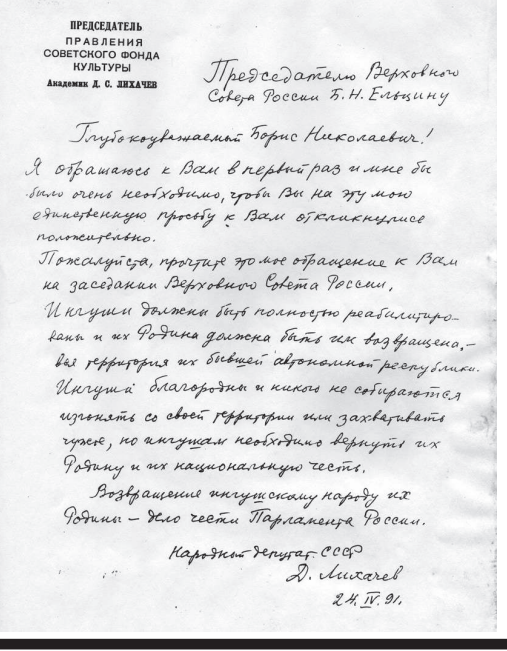 ПРЕДСЕДАТЕЛЬ
ПРАВЛЕНИЯ
СОВЕТСКОГО ФОНДА
КУЛЬТУРЫ
Академик Д. С. ЛИХАЧЕВ
Председателю Верховного
Совета России Б.Н. Ельцину
Глубокоуважаемый Борис Николаевич!
Я обращаюсь к Вам в первый раз и мне бы
было очень необходимо, чтобы Вы на эту мою
единственную просьбу к Вам откликнулись
положительно.
Пожалуйста, прочтите это мое обращение к Вам
на заседании Верховного Совета России.
Ингуши должны быть полностью реабилитиро-
ваны и их Родина должна быть им возвращена, –
вся территория их бывшей автономной республики.
Ингуши благородны и никого не собираются
изгонять со своей территории или захватывать
чужое, но ингушам необходимо вернуть их
Родину и их национальную честь.
Возвращение ингушскому народу их
Родины – дело чести Парламента России.
Народный депутат СССР
Д. Лихачев
24.IV.91.